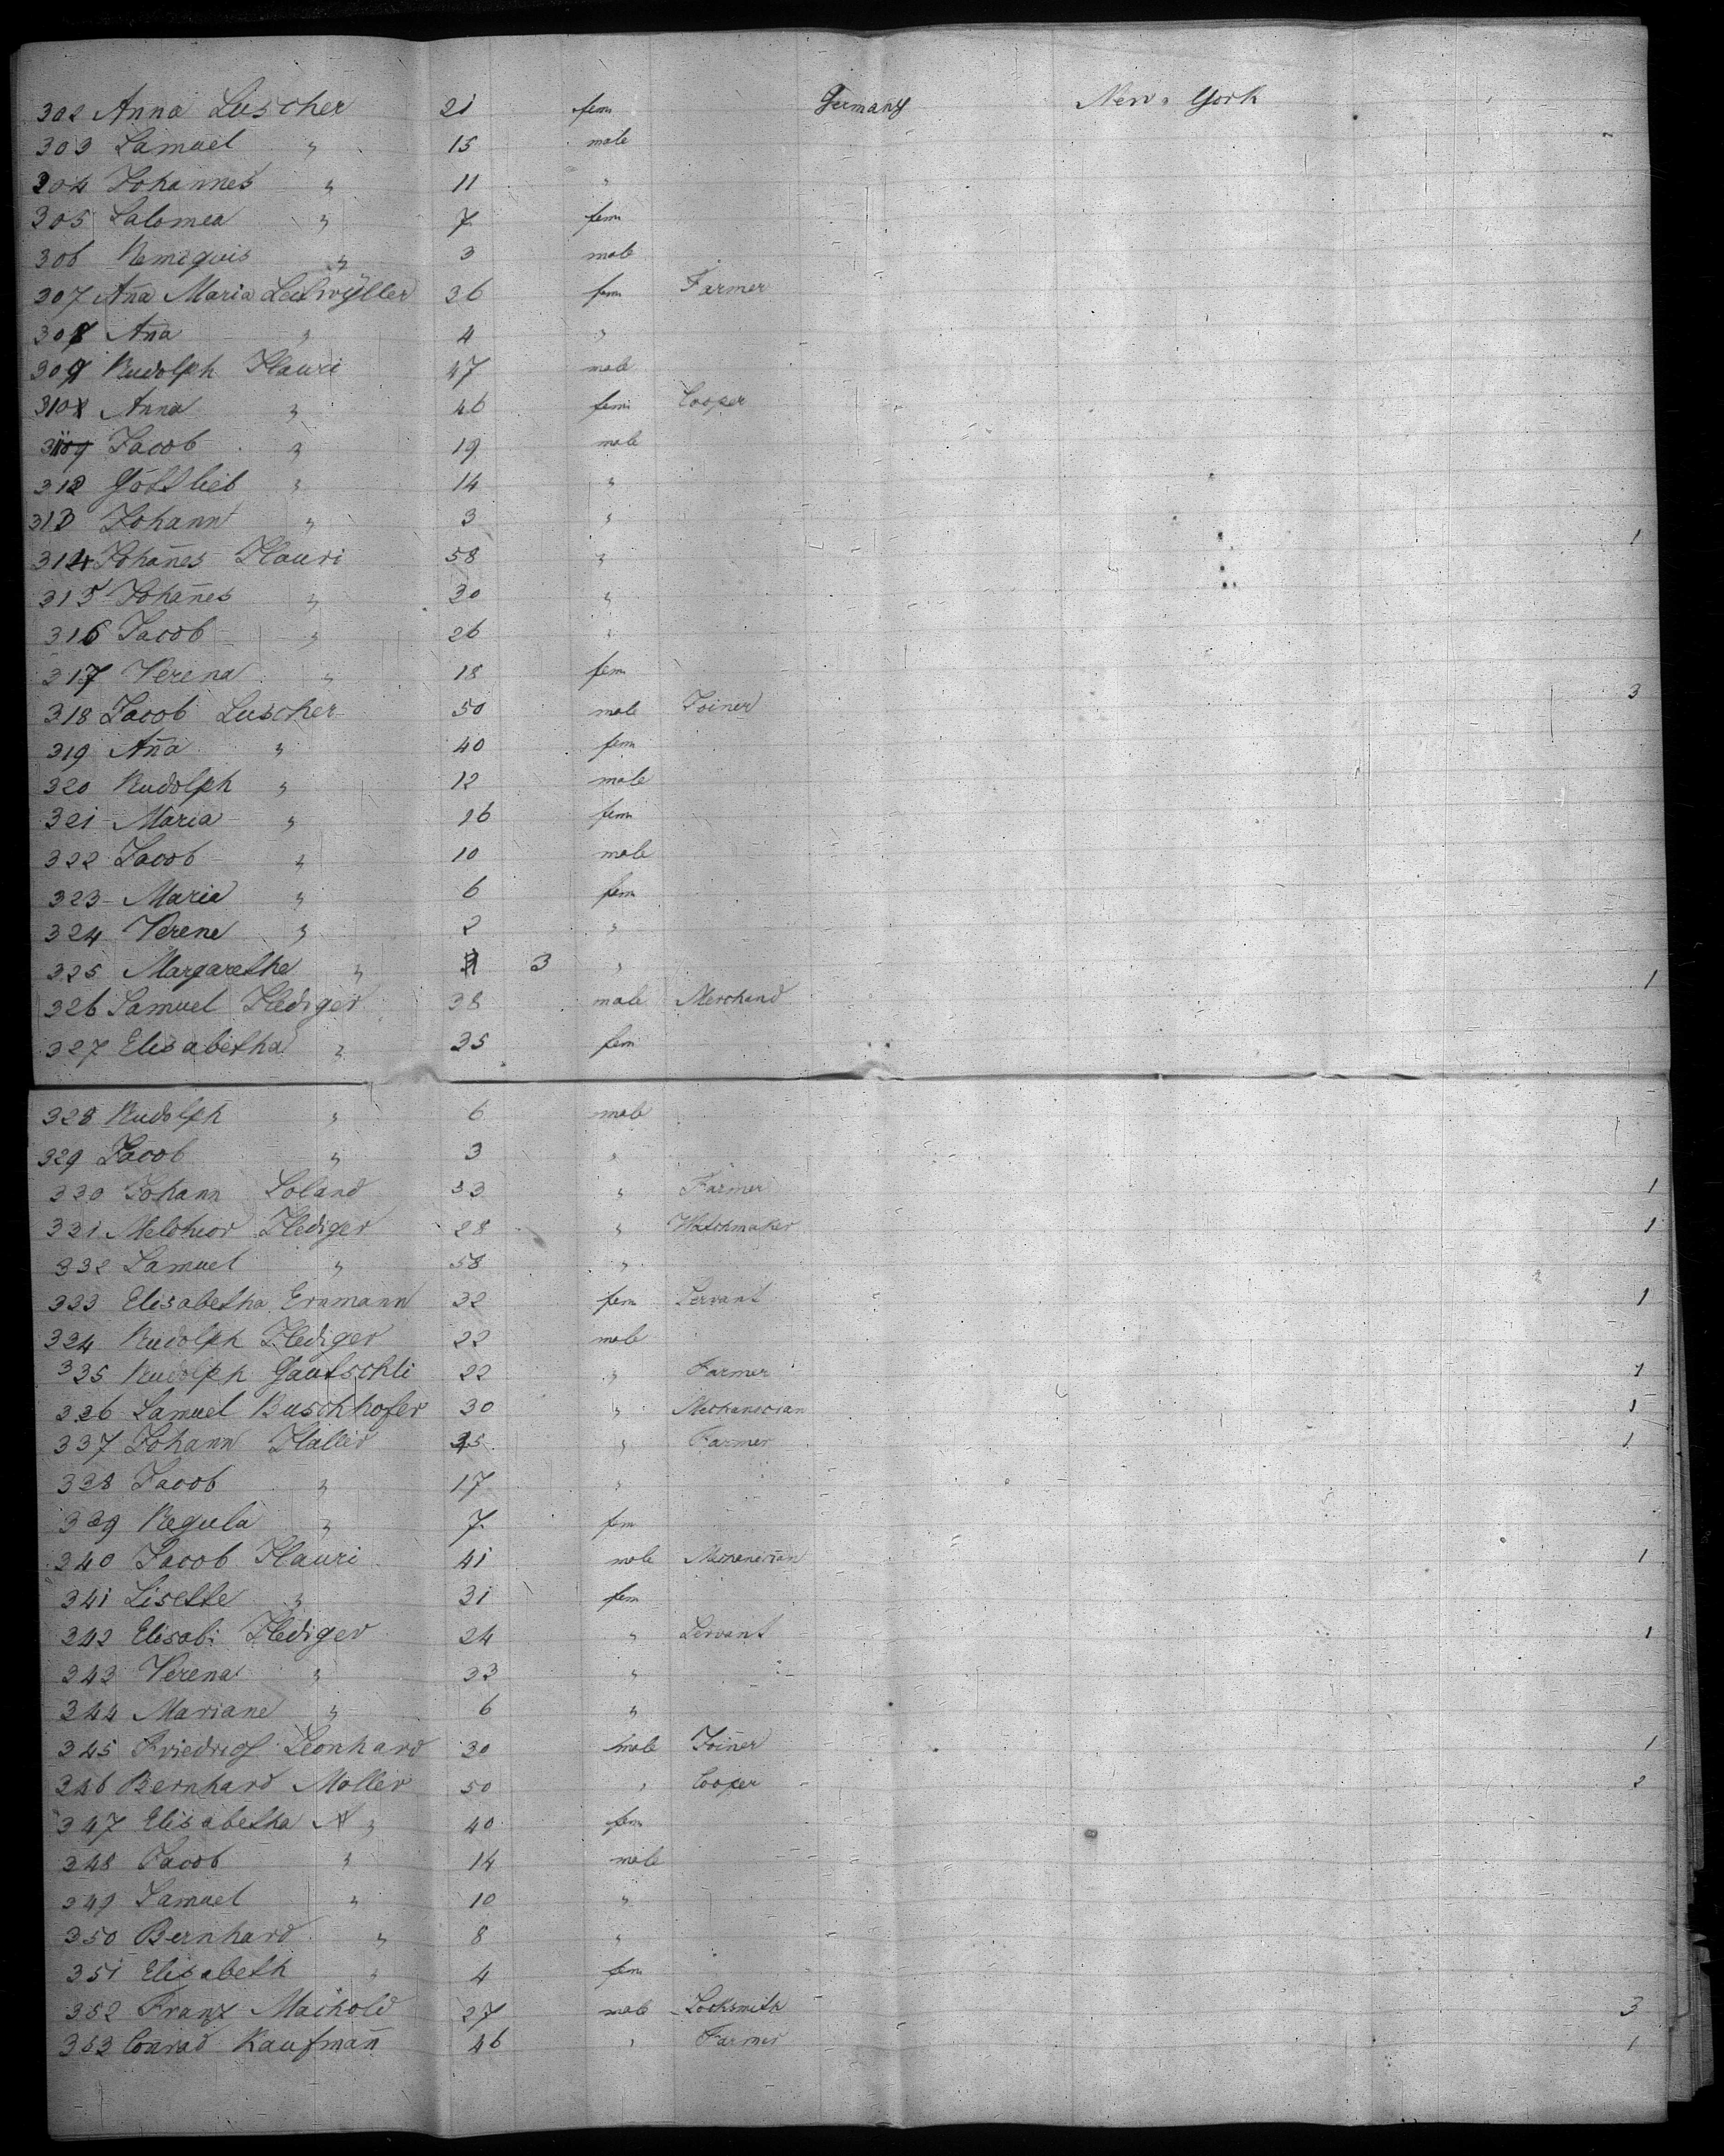 302 Anna Luscher 21 fem Germany New York
303 Samuel " 15 male
304 Johannes " 11 "
305 Salomea " 7 fem
306 Remigius " 3 male
307 Ana Maria 36 fem Farmer
308 Ana " 4 "
309 Rudolph Hauri 47 male
310 Anna " 46 fem Cooper
311 Jacob " 19 male
312 Gottlieb " 14 "
313 Johann " 3 "
314 Johañes Hauri 58 " 1
315 Johañes " 30 "
316 Jacob " 26 "
317 Verena " 18 fem
318 Jacob Luscher 50 male Joiner 3
319 Aña " 40 fem
320 Rudolph " 12 male
321 Maria " 16 fem
322 Jacob " 10 male
323 Maria " 6 fem
324 Verene " 2 "
325 Margarethe " 3 "
326 Samuel Hediger 38 male Merchand 1
327 Elisabetha " 35 fem
328 Rudolph " 6 male
329 Jacob " 3 "
330 Johann Soland 33 " Farmer 1
331 Melchior Hediger 28 " Watchmaker 1
332 Samuel " 58 "
333 Elisabetha Ermann 32 fem Servant 1
334 Rudolph Hediger 22 male
335 Rudolph Gautschli 22 " Farmer 1
336 Samuel Buschhofer 30 " Mechanician 1
337 Johann Haller 35 " Farmer 1
338 Jacob " 17 "
339 Regula " 7 fem
340 Jacob Hauri 41 male Mechanician 1
341 Lisette " 31 fem
342 Elisab: Hediger 24 " Servant 1
343 Verena " 33 "
344 Mariane " 6 "
345 Friedrich Leonhard 30 male Joiner 1
346 Bernhard Moller 50 " Cooper 2
347 Elisabetha " 40 fem
348 Jacob " 14 male
349 Samuel " 10 "
350 Bernhard " 8 "
351 Elisabeth " 4 fem
352 Franz Machold 27 male Locksmith 3
353 Conrad Kaufmañ 46 " Farmer 1